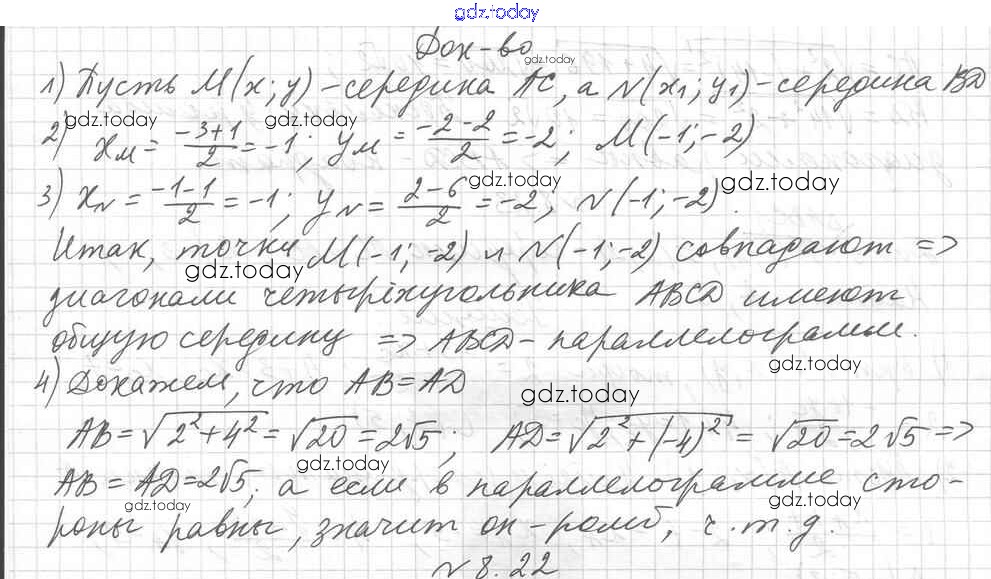 gdz.today
Док-во
1) Пусть M(x; y) - середина AC, а N(x₁; y₁) - середина BD
2) x_M = (-3+1)/2 = -1; y_M = (-2-2)/2 = -2; M(-1; -2)
3) x_N = (-1-1)/2 = -1; y_N = (2-6)/2 = -2; N(-1; -2).
Итак, точки M(-1; -2) и N(-1; -2) совпадают =>
диагонали четырёхугольника ABCD имеют
общую середину => ABCD - параллелограмм.
4) Докажем, что AB = AD
AB = √(2² + 4²) = √20 = 2√5; AD = √(2² + (-4)²) = √20 = 2√5 =>
AB = AD = 2√5; а если в параллелограмме сто-
роны равны, значит он - ромб, ч.т.д.
N 8.22
gdz.today
gdz.today
gdz.today
gdz.today
gdz.today
gdz.today
gdz.today
gdz.today
gdz.today
gdz.today
gdz.today